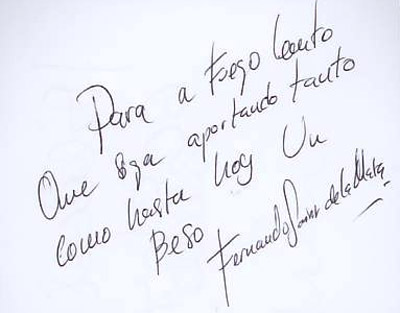 Para a Fuego Lento
Que siga aportando tanto
como hasta hoy Un
Beso
Fernando Sainz de la Maza